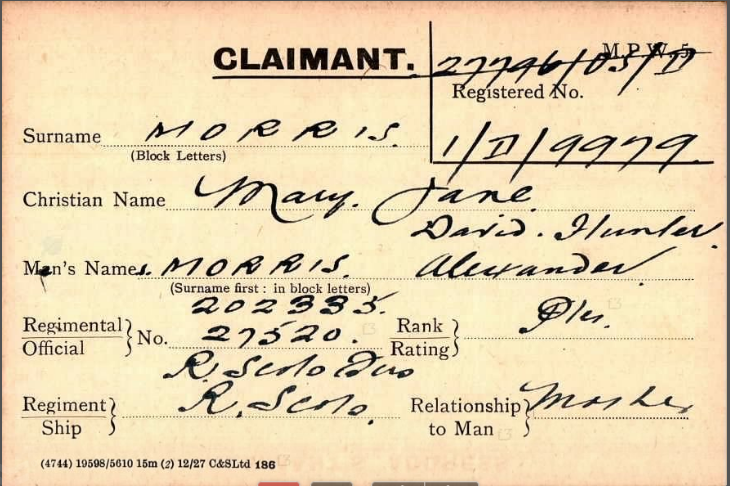 M.P.W. 5
CLAIMANT. 27746/03/D
Registered No.
Surname MORRIS.
(Block Letters)
1/D/9979.
Christian Name Mary. Jane.
David. Hunter.
Man's Names. MORRIS. Alexander.
(Surname first : in block letters)
202335.
Regimental Official } No. 27520. Rank Rating } Ptes.
R. Scots Fus
Regiment Ship } R. Scots. Relationship to Man } Mother
(4744) 19598/5610 15m (2) 12/27 C&SLtd 186